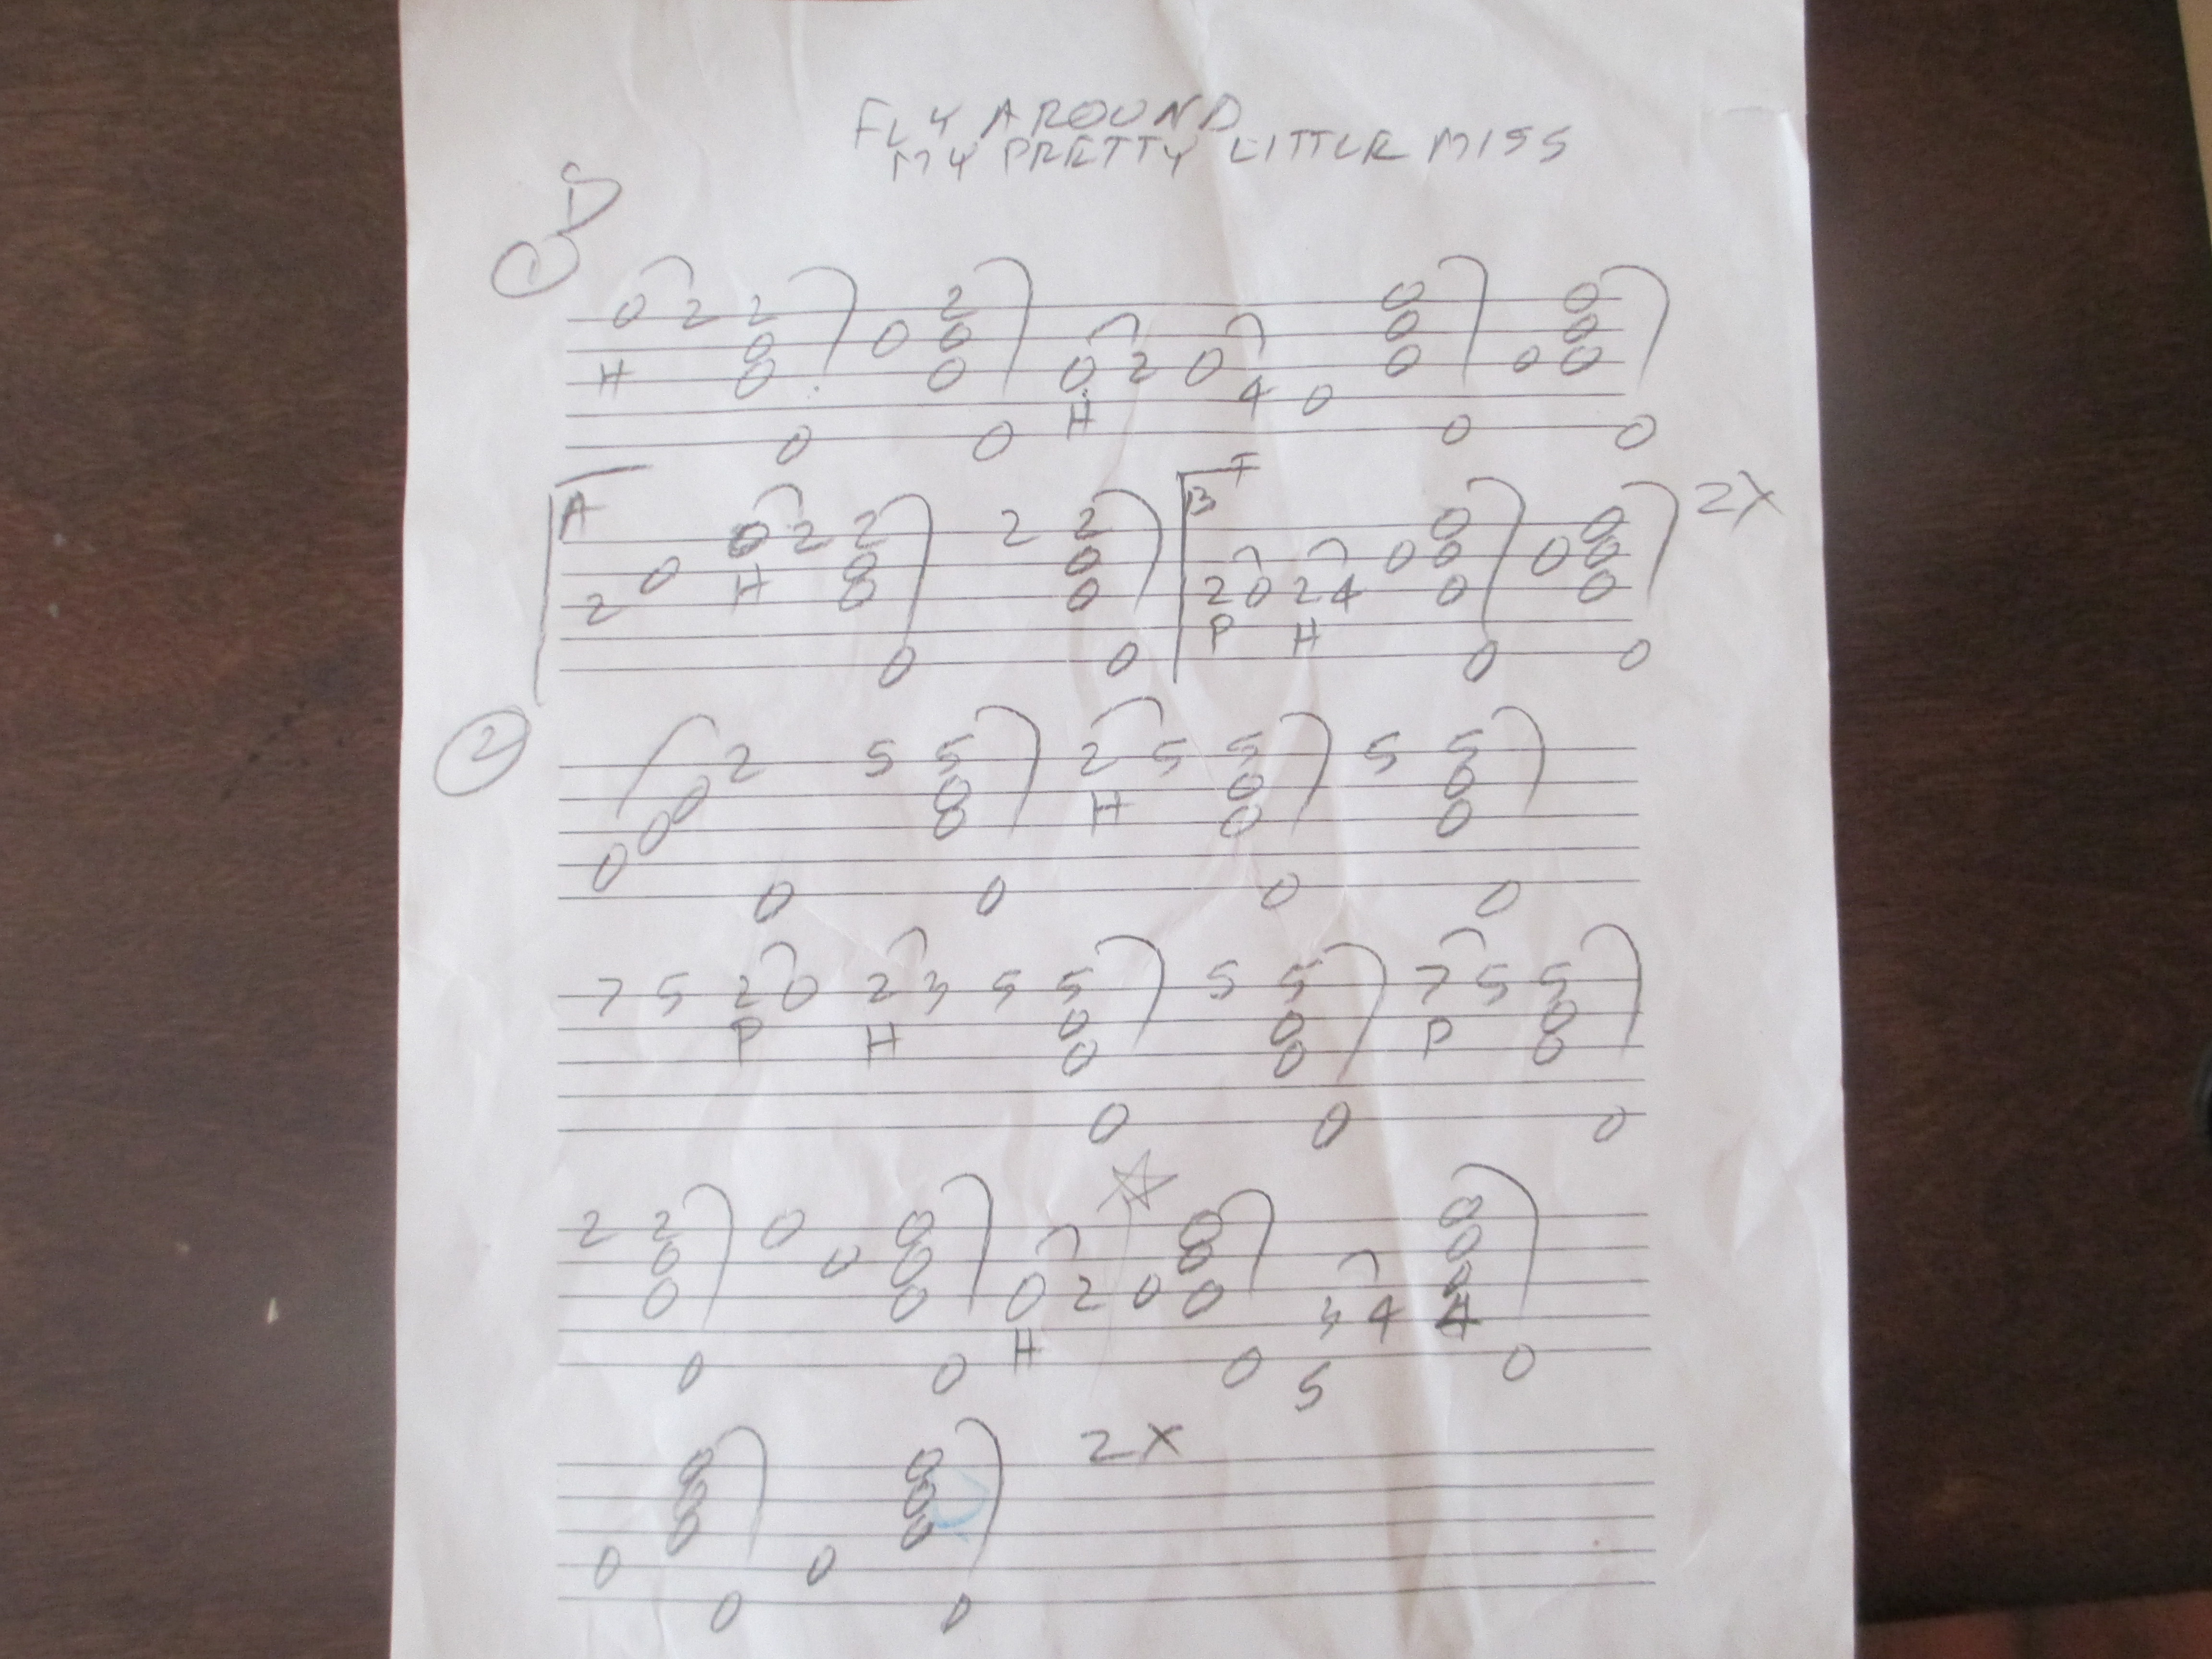 FLY AROUND
MY PRETTY LITTLE MISS
D
1
0 2 2 0 2 0 0
0 0 0 0 0
H 0 0 0 2 0 0 0 0
H 4 0
0 0 0 0
A B I 2X
0 2 2 2 2 0 0
0 H 0 0 0 0 0 0
2 0 0 2 0 2 4 0 0
P H
0 0 0 0
2
2 5 5 2 5 5 5 5
0 0 H 0 0
0 0 0 0
0
0 0 0 0
7 5 2 0 2 3 5 5 5 5 7 5 5
P H 0 0 P 0
0 0 0
0 0 0
2 2 0 0 0 0
0 0 0 0 0
0 0 0 2 0 0 0
H 3 4 4
0 0 0 5 0
2X
0 0
0 0
0 0
0 0
0 0